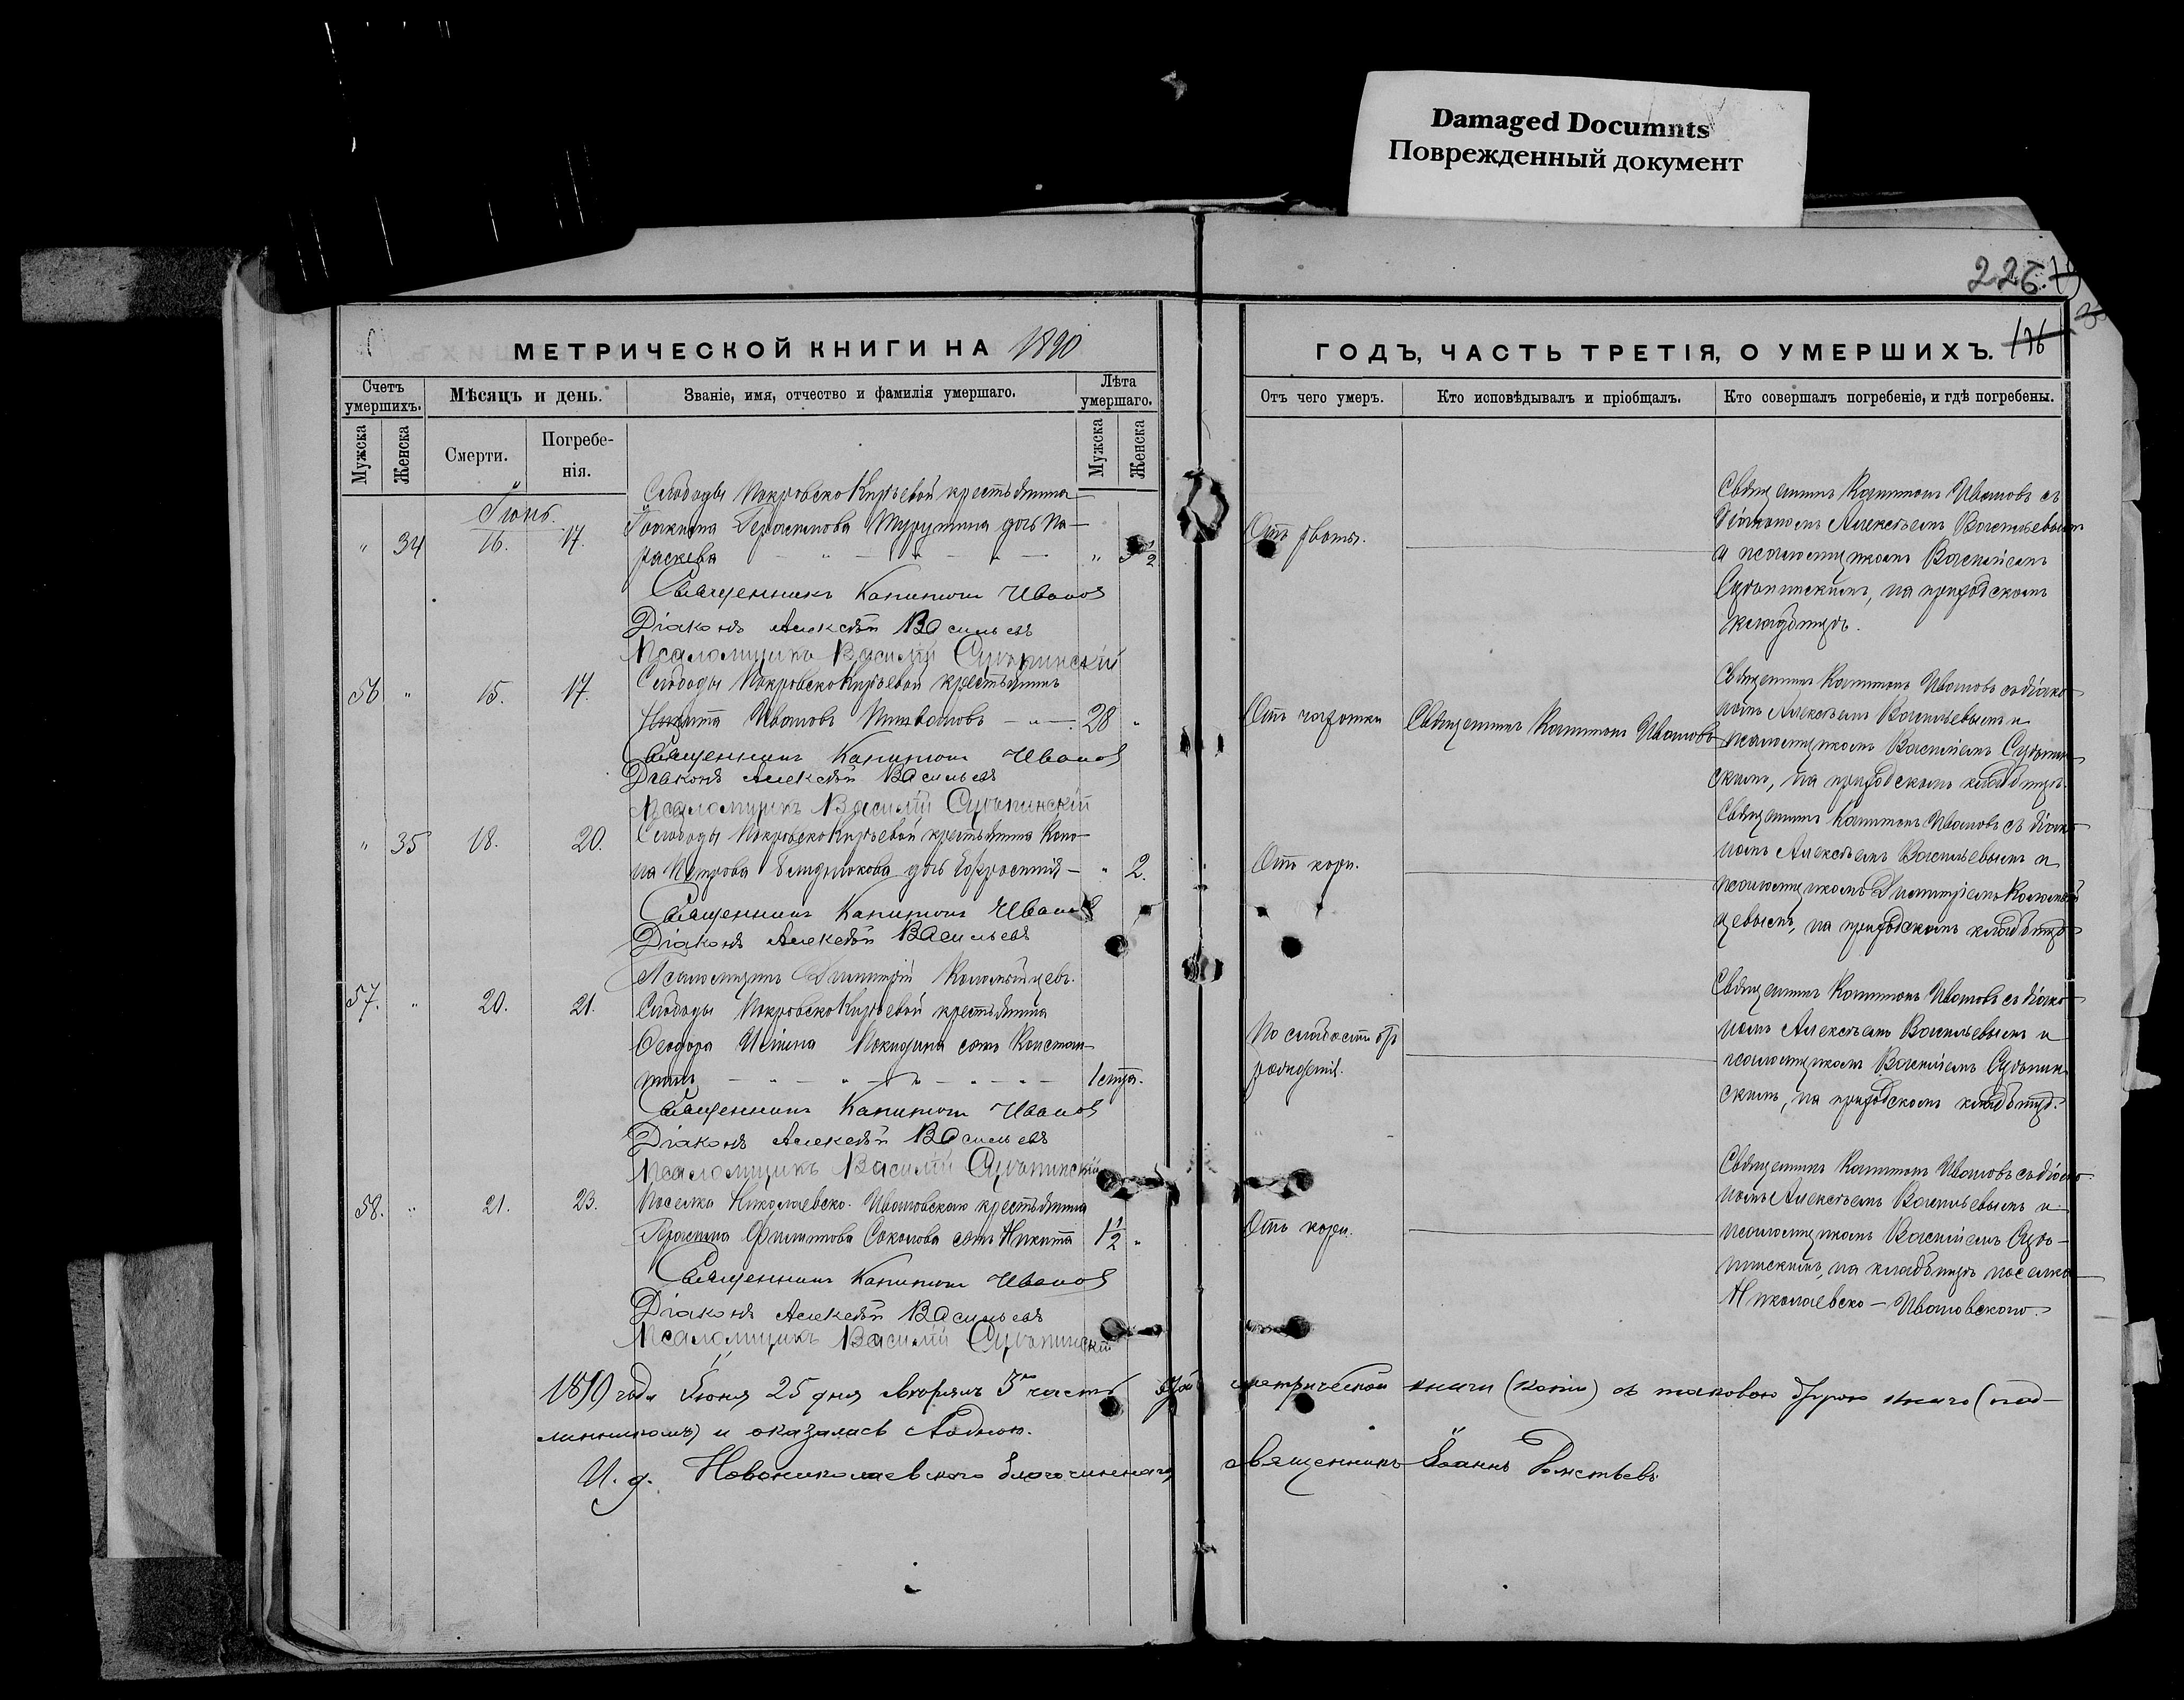 Damaged Documnts
Поврежденный документ
226.
176
МЕТРИЧЕСКОЙ КНИГИ НА 1890
ГОДЪ, ЧАСТЬ ТРЕТІЯ, О УМЕРШИХЪ.
Счетъ умершихъ.
Мѣсяцъ и день.
Званіе, имя, отчество и фамилія умершаго.
Лѣта умершаго.
Отъ чего умеръ.
Кто исповѣдывалъ и пріобщалъ.
Кто совершалъ погребеніе, и гдѣ погребены.
Мужска
Женска
Смерти.
Погребенія.
Мужска
Женска
Іюнь.
" 34 16. 17.
Слободы Покровско Кирѣевой крестьянина
Іоакима Герасимова дочь Па-
раскева
Священникъ Капитонъ Ивановъ
Діаконъ Алексѣй Васильевъ
Псаломщикъ Василій
Священникъ Капитонъ Ивановъ съ
Діакономъ Алексѣемъ Васильевымъ
и псаломщикомъ Василіемъ
на приходскомъ
кладбищѣ.
56 " 15. 17.
Слободы Покровско Кирѣевой крестьянинъ
Никита Ивановъ 28 "
Священникъ Капитонъ Ивановъ
Діаконъ Алексѣй Васильевъ
Псаломщикъ Василій
Отъ чахотки
Священникъ Капитонъ Ивановъ
Священникъ Капитонъ Ивановъ съ діако-
номъ Алексѣемъ Васильевымъ и
псаломщикомъ Василіемъ
на приходскомъ кладбищѣ.
" 35 18. 20.
Слободы Покровско Кирѣевой крестьянина Коно-
на Петрова дочь Ефросинія " 2.
Священникъ Капитонъ Ивановъ
Діаконъ Алексѣй Васильевъ
Псаломщикъ Димитрій Коломыйцевъ.
Отъ кори.
Священникъ Капитонъ Ивановъ съ діако-
номъ Алексѣемъ Васильевымъ и
псаломщикомъ Димитріемъ Коломый-
цевымъ, на приходскомъ кладбищѣ
57. " 20. 21.
Слободы Покровско Кирѣевой крестьянина
Ѳеодора сынъ Констан-
тинъ
Священникъ Капитонъ Ивановъ
Діаконъ Алексѣй Васильевъ
Псаломщикъ Василій
По слабости отъ
рожденія.
Священникъ Капитонъ Ивановъ съ діако-
номъ Алексѣемъ Васильевымъ и
псаломщикомъ Василіемъ
на приходскомъ кладбищѣ.
58. " 21. 23.
Поселка Николаевско-Ивановскаго крестьянина
Филиппова Соколова сынъ Никита 1½ "
Священникъ Капитонъ Ивановъ
Діаконъ Алексѣй Васильевъ
Псаломщикъ Василій
Отъ кори.
Священникъ Капитонъ Ивановъ съ діако-
номъ Алексѣемъ Васильевымъ и
псаломщикомъ Василіемъ
на кладбищѣ поселка
Николаевско-Ивановскаго.
1890 года Іюня 25 дня 3ю часть метрической книги (копію) съ таковою (под-
линникомъ) и оказалась
И. д. Новониколаевскаго благочиннаго, священникъ Іоаннъ